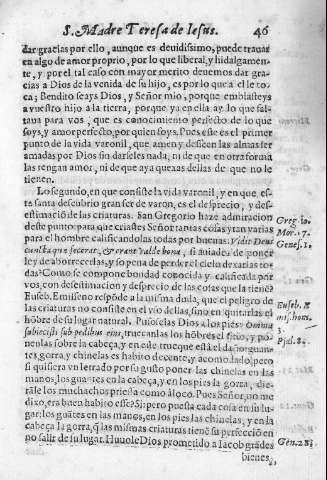 S. Madre Teresa de Iesus. 46
dar gracias por ello, aunque es deuidissimo, puede trauar
en algo de amor proprio, por lo que liberal, y hidalgamen-
te, y por el tal caso con mayor merito deuemos dar gra-
cias a Dios de la venida de su hijo, es por lo que a el le to-
ca; Bendito seays Dios, y Señor mio, porque embiasteys
a vuestro hijo a la tierra, porque ya en ella ay lo que fal-
taua para vos, que es conocimiento perfecto de lo que
soys, y amor perfecto, por quien soys. Pues este es el primer
punto de la vida varonil, que amen y desseen las almas ser
amadas por Dios sin darseles nada, ni de que en otra forma
las tengan amor, ni de que aya quexas dellas de que no le
tienen.
Lo segundo, en que consiste la vida varonil, y en que es-
ta santa descubrio gran ser de varon, es el desprecio, y des-
estimació de las criaturas. San Gregorio haze admiracion
deste punto: para que criastes Señor tantas cosas y tan varias
para el hombre calificandolas todas por buenas: Vidit Deus
cuncta quæ fecerat, & erant valde bona, si auiades de poner
ley de aborrecerlas, y so pena de perder el cielo de varios to-
das? Como se compone bondad conocida y calificada por
vos, con desestimacion y desprecio de las cosas que la tiené?
Euseb. Emisseno respóde a la misma duda, que el peligro de
las criaturas no consiste en el vso dellas, sino en quitarlas el
hóbre de su lugar natural. Pusoselas Dios a los pies: Omnia
subiecisti sub pedibus eius, truecanlas los hóbres el sitio, y po-
nenlas sobre la cabeça, y en este trueque está el daño: guan-
tes, gorra, y chinelas es habito decente, y acomodado, pero
si quisiera vn letrado por su gusto poner las chinelas en las
manos, los guantes en la cabeça, y en los pies la gorra, die-
rále los muchachos priessa como á loco. Pues Señor, no me
dixo, era buen habito esse? Si: pero puesta cada cosa en su lu-
gar: los guátes en las manos, en los pies las chinelas, y en la
cabeça la gorra, q̃ las mismas criaturas tiene su perfecció en
no salir de su lugar. Huuole Dios prometido a Iacob grádes
bienes,
Greg. lo.
Mor. 7.
Genes. 1.
Euseb. E
mis. hom.
3.
Psal. 8.
Gen. 28.